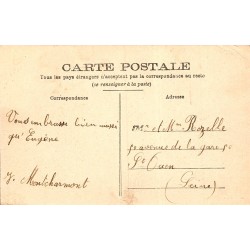 CARTE POSTALE
Tous les pays étranger n'acceptent pas la correspondance au recto
(se renseigner à la poste)
Correspondance
Adresse
Vous embrasse bien aussi
qu'Eugène
J. Montcharmont
et Mme Rozelle
avenue de la gare
St Ouen
(Seine)